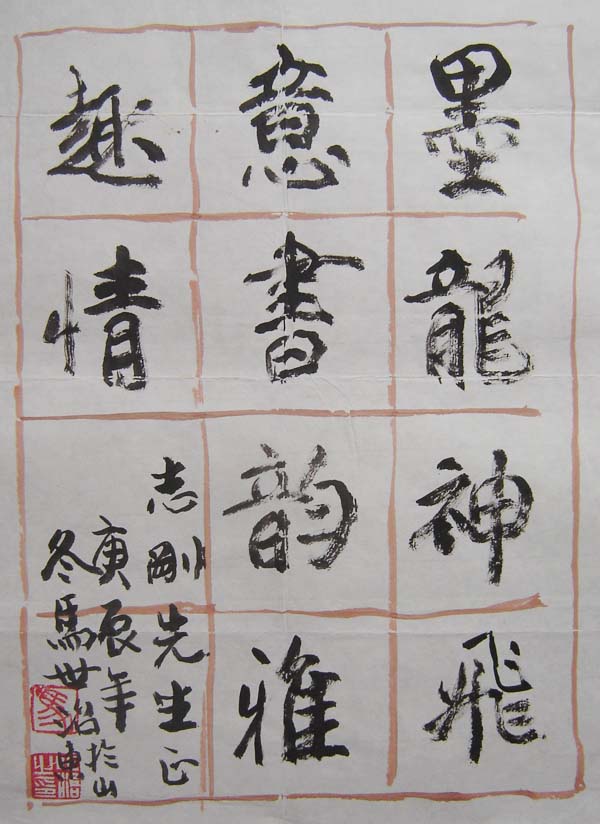 墨龍神飛
意書韵雅
趣情
志剛先生正
庚辰年
冬馬世治
於山